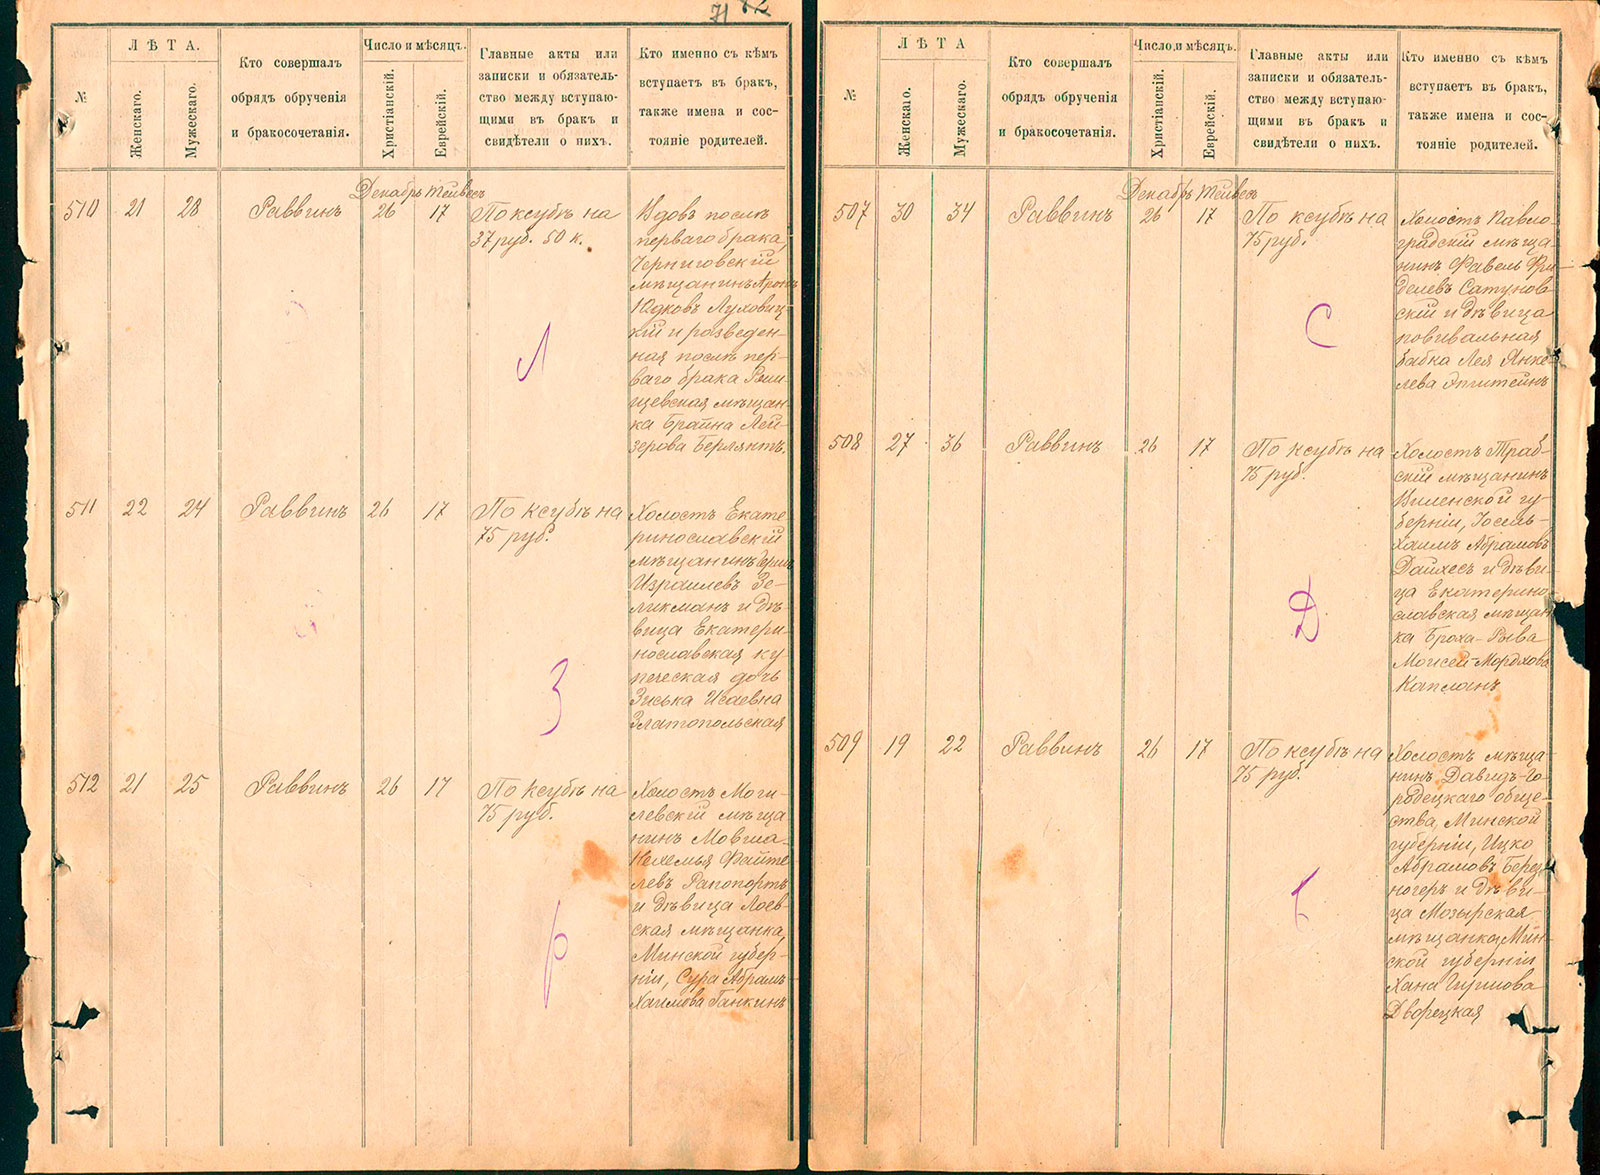 71 72
№
ЛѢТА.
Женскаго.
Мужескаго.
Кто совершалъ
обрядъ обрученія
и бракосочетанія.
Число и мѣсяцъ.
Христіанскій.
Еврейскій.
Главные акты или
записки и обязатель-
ство между вступаю-
щими въ бракъ и
свидѣтели о нихъ.
Кто именно съ кѣмъ
вступаетъ въ бракъ,
также имена и сос-
тояніе родителей.
Декабрь Тейвесъ
510 21 28 Раввинъ 26 17
По ксубѣ на
37 руб. 50 к.
Вдовъ послѣ
перваго брака,
Черниговскій
мѣщанинъ Аронъ
Юдковъ Луховиц-
кій и разведен-
ная послѣ пер-
ваго брака
щевская мѣщан-
ка Брайна Лей-
зерова Берлянтъ.
Л
511 22 24 Раввинъ 26 17
По ксубѣ на
75 руб.
Холостъ Екате-
ринославскій
мѣщанинъ
Израилевъ Зе-
ликманъ и дѣ-
вица Екатери-
нославская ку-
печеская дочь
Зиська Исаевна
Златопольская
З
512 21 25 Раввинъ 26 17
По ксубѣ на
75 руб.
Холостъ Моги-
левскій мѣща-
нинъ Мовша-
Нехемья Файте-
левъ Рапопортъ
и дѣвица Лоев-
ская мѣщанка,
Минской губер-
ніи, Сура Абрамъ-
Хаимова Ганкинъ
Р
№
ЛѢТА
Женскаго.
Мужескаго.
Кто совершалъ
обрядъ обрученія
и бракосочетанія.
Число и мѣсяцъ.
Христіанскій.
Еврейскій.
Главные акты или
записки и обязатель-
ство между вступаю-
щими въ бракъ и
свидѣтели о нихъ.
Кто именно съ кѣмъ
вступаетъ въ бракъ,
также имена и сос-
тояніе родителей.
Декабрь Тейвесъ
507 30 34 Раввинъ 26 17
По ксубѣ на
75 руб.
Холостъ Павло-
градскій мѣща-
нинъ Фавель Фи-
делевъ Сатунов-
скій и дѣвица
повивальная
бабка Лея Янке-
лева Эпштейнъ
С
508 27 36 Раввинъ 26 17
По ксубѣ на
75 руб.
Холостъ Траб-
скій мѣщанинъ
Виленской гу-
берніи, Іосель-
Хаимъ Абрамовъ
Дайхесъ и дѣви-
ца Екатерино-
славская мѣщан-
ка Броха-Рыва
Моисей-Мордхова
Капланъ
Д
509 19 22 Раввинъ 26 17
По ксубѣ на
75 руб.
Холостъ мѣща-
нинъ Давидъ-Го-
родецкаго обще-
ства, Минской
губерніи, Ицко
Абрамовъ Берез-
ногеръ и дѣви-
ца Мозырская
мѣщанка, Мин-
ской губерніи
Хана Гиршова
Дворецкая
Б